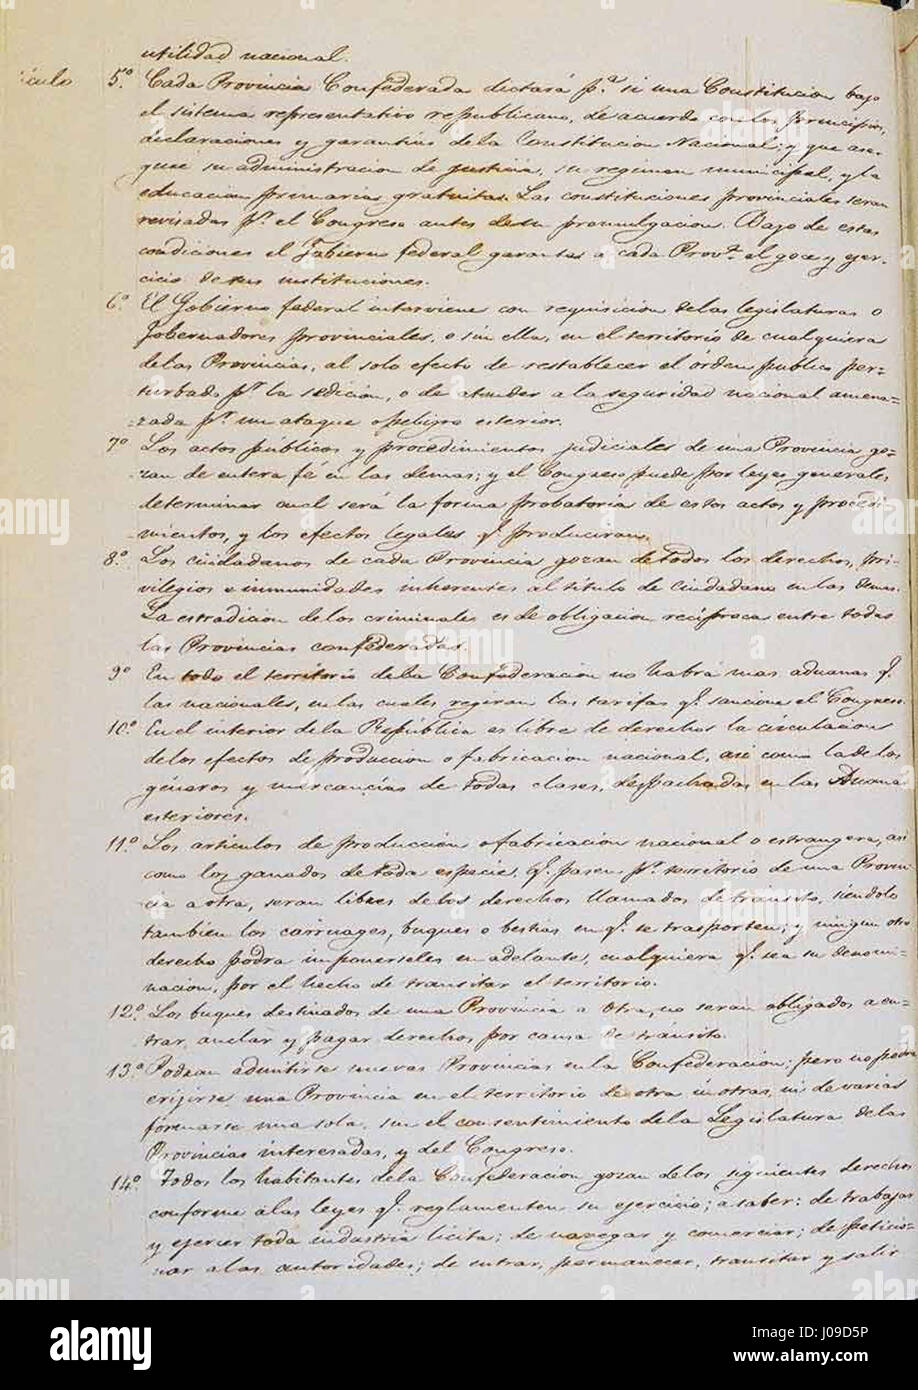 utilidad nacional.
ículo 5º. Cada Provincia Confederada dictará pª. si una Constitucion bajo
el sistema representativo republicano, de acuerdo con los principios,
declaraciones y garantias de la Constitucion Nacional; y que ase-
gure su administracion de justicia, su regimen municipal, y la
educacion primaria gratuita. Las constituciones provinciales seran
revisadas pr. el Congreso antes de su promulgacion. Bajo de estas
condiciones el Gobierno federal garante a cada Prova. el goce y ejer-
cicio de sus instituciones.
6º. El Gobierno federal interviene con requisicion de las legislaturas o
Gobernadores provinciales, o sin ella, en el territorio de cualquiera
de las Provincias, al solo efecto de restablecer el órden publico per-
turbado pr. la sedicion, o de atender a la seguridad nacional amena-
zada pr. un ataque o peligro esterior.
7º Los actos públicos y procedimientos judiciales de una Provincia go-
zan de entera fé en las demas; y el Congreso puede por leyes generales
determinar cual será la forma probatoria de estos actos y procedi-
mientos, y los efectos legales q. produciran.
8º. Los ciudadanos de cada Provincia gozan de todos los derechos, pri-
vilegios e inmunidades inherentes al titulo de ciudadano en las demas.
La estradicion de los criminales es de obligacion recíproca entre todas
las Provincias confederadas.
9º En todo el territorio de la Confederacion no habrá mas aduanas q.
las nacionales, en las cuales regiran las tarifas q. sancione el Congreso.
10º. En el interior de la República es libre de derechos la circulacion
de los efectos de produccion o fabricacion nacional, asi como la de los
géneros y mercancías de todas clases, despachadas en las Aduanas
esteriores.
11º. Los artículos de produccion o fabricacion nacional o estrangera, asi
como los ganados de toda especie, q. pasen pr. territorio de una Provin
cia a otra, seran libres de los derechos llamados de transito, siéndolo
tambien los carruages, buques o bestias en q. se trasporten; y ningun otro
derecho podra imponerseles en adelante, cualquiera q. sea su denomi-
nacion, por el hecho de transitar el territorio.
12º. Los buques destinados de una Provincia a otra, no seran obligados a en-
trar, anclar y pagar derechos por causa de tránsito.
13º. Podran admitirse nuevas Provincias en la Confederacion; pero no podra
erijirse una Provincia en el territorio de otra u otras, ni de varias
formarse una sola, sin el consentimiento de la Legislatura de las
Provincias interesadas, y del Congreso.
14º. Todos los habitantes de la Confederacion gozan de los siguientes derechos
conforme a las leyes q. reglamenten su ejercicio; a saber: de trabajar
y ejercer toda industria licita; de navegar y comerciar; de peticio-
nar a las autoridades; de entrar, permanecer, transitar y salir
alamy
Image ID: J09D5P
www.alamy.com